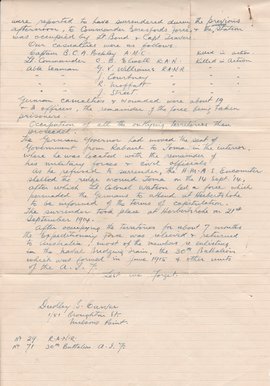 were reported to have surrendered during the previous
afternoon, to Commander Beresfords force, the Station
was occupied by Lt Bond & Capt Travers
Our casualties were as follows.
Captain B.C.A. Pockley A.M.C. Killed in action
Lt Commander C. B. Elwell R.A.N. Killed in Action
Able Seaman G. V. Williams R.A.N.R.
" J. Courtney
" R. Moffatt
" Street
German casualties & wounded were about 19
& officers, the remainder of the force being taken
prisoners.
Occupation of all the outlying territories then
proceeded.
The German Governor had moved the seat of
Government from Rabaul to Toma in the interior,
where he was located with the remainder of
his military forces & civil officials
As he refused to surrender, the H.M.A.S. Encounter
shelled the ridge around Toma on the 14 Sept 14,
after which the Colonel Watson led a force which
persuaded the Germans to attend at Herbertshohe
to be informed of the terms of capitulation.
The surrender took place at Herbertshohe on 21st
September 1914.
After occupying the territories for about 7 months
the Expeditionary force was relieved & returned
to Australia, most of the members re enlisting
in the Naval Bridging train, the 30th Battalion
which was formed in June 1915 & other units
of the A. I. F.
Lest we forget.
Dudley S.
Broughton St
Milsons Point.
No 29 R.A.N.R.
No 71 30th Battalion A.I.F.